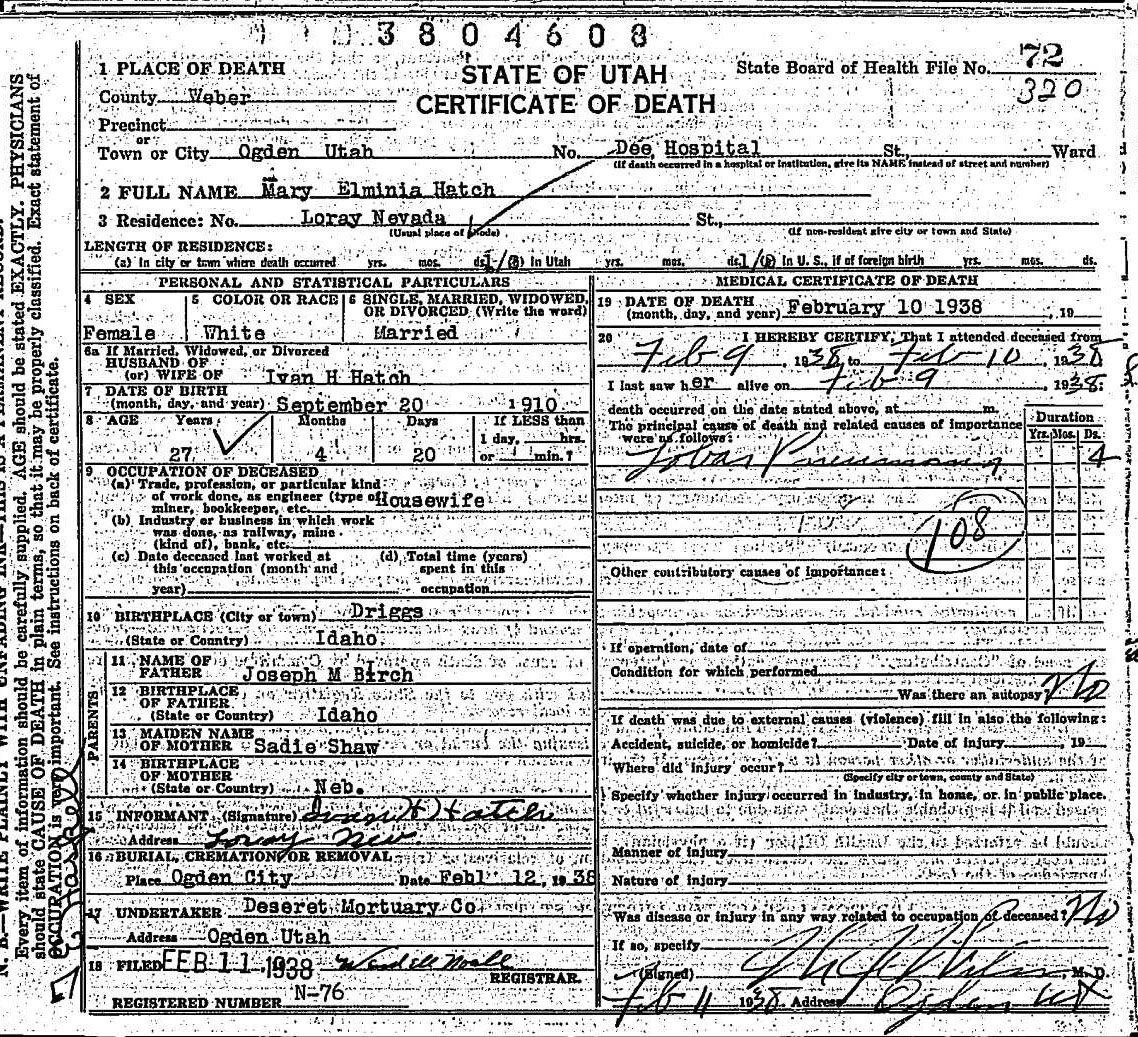 3804608
1 PLACE OF DEATH
STATE OF UTAH
CERTIFICATE OF DEATH
State Board of Health File No. 72
320
County Weber
Precinct
or
Town or City Ogden Utah No. Dee Hospital St., Ward
(If death occurred in a hospital or institution, give its NAME instead of street and number)
2 FULL NAME Mary Elminia Hatch
3 Residence: No. Loray Nevada St.,
(Usual place of abode) (If non-resident give city or town and State)
LENGTH OF RESIDENCE:
(a) In city or town where death occurred yrs. mos. ds. 1 (B) In Utah yrs. mos. ds. 1 In U. S., if of foreign birth yrs. mos. ds.
PERSONAL AND STATISTICAL PARTICULARS
4 SEX 5 COLOR OR RACE 6 SINGLE, MARRIED, WIDOWED,
OR DIVORCED (Write the word)
Female White Married
6a If Married, Widowed, or Divorced
HUSBAND OF
(or) WIFE OF Ivan H Hatch
7 DATE OF BIRTH
(month, day, and year) September 20 1910
8 AGE Years Months Days If LESS than
1 day, hrs.
27 4 20 or min.?
9 OCCUPATION OF DECEASED
(a) Trade, profession, or particular kind
of work done, as engineer (type of Housewife
miner, bookkeeper, etc.
(b) Industry or business in which work
was done, as railway, mine
(kind of), bank, etc.
(c) Date deceased last worked at (d) Total time (years)
this occupation (month and spent in this
year) occupation
10 BIRTHPLACE (City or town) Driggs
(State or Country) Idaho
PARENTS
11 NAME OF
FATHER Joseph M Birch
12 BIRTHPLACE
OF FATHER
(State or Country) Idaho
13 MAIDEN NAME
OF MOTHER Sadie Shaw
14 BIRTHPLACE
OF MOTHER
(State or Country) Neb.
15 INFORMANT (Signature) Ivan H Hatch
Address Loray Nev.
16 BURIAL, CREMATION OR REMOVAL
Place Ogden City Date Feb 12, 1938
17 UNDERTAKER Deseret Mortuary Co
Address Ogden Utah
18 FILED FEB 11 1938
REGISTRAR.
REGISTERED NUMBER N-76
MEDICAL CERTIFICATE OF DEATH
19 DATE OF DEATH
(month, day, and year) February 10 1938, 19
20 I HEREBY CERTIFY, That I attended deceased from
Feb 9, 1938 to Feb 10, 1938
I last saw her alive on Feb 9, 1938
death occurred on the date stated above, at m.
The principal cause of death and related causes of importance
were as follows:
Duration
Yrs. Mos. Ds.
Lobar Pneumonia 4
108
Other contributory causes of importance:
If operation, date of
Condition for which performed
Was there an autopsy? No
If death was due to external causes (violence) fill in also the following:
Accident, suicide, or homicide? Date of injury, 19
Where did injury occur?
(Specify city or town, county and State)
Specify whether injury occurred in industry, in home, or in public place.
Manner of injury
Nature of injury
Was disease or injury in any way related to occupation of deceased? No
If so, specify
(Signed) M. D.
Feb 11 1938 Address Ogden Ut
N. B.—WRITE PLAINLY WITH UNFADING INK—THIS IS A PERMANENT RECORD.
Every item of information should be carefully supplied. AGE should be stated EXACTLY. PHYSICIANS
should state CAUSE OF DEATH in plain terms, so that it may be properly classified. Exact statement of
OCCUPATION is very important. See instructions on back of certificate.